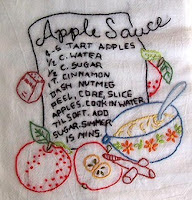 Apple Sauce
6-8 TART APPLES
½ C. WATER
½ C. SUGAR
¼ T. CINNAMON
DASH NUTMEG
PEEL, CORE, SLICE
APPLES, COOK IN WATER
TIL SOFT. ADD
SUGAR-SIMMER
15 MINS.